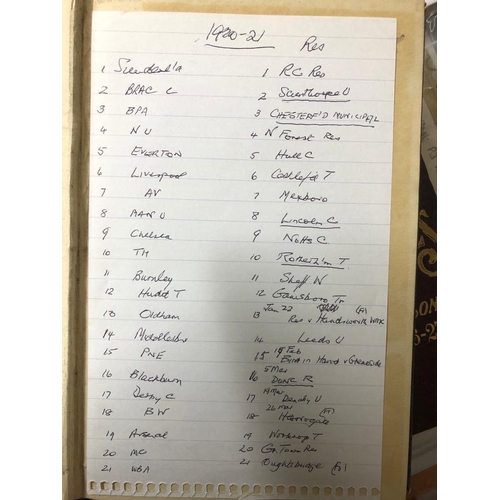 1920-21 Res
1 Sunderl'd
1 RC Res
2 BRAC C
2 Scunthorpe U
3 BPA
3 CHESTERF'D MUNICIPAL
4 N U
4 N Forest Res
5 EVERTON
5 Hull C
6 Liverpool
6 Castleford T
7 AV
7 Mexboro
8 MAN U
8 Lincoln C
9 Chelsea
9 Notts C
10 TH
10 Rotherh'm T
11 Burnley
11 Sheff W
12 Hudd T
12 Gainsboro Tn
Jan 22
13 Oldham
13 Res v Handsworth
14 Middlesbro
14 Leeds U
15 PNE
19 Feb
15 v Grenoside
5 Mar
16 Blackburn
16 DONC R
17 Derby C
17 Denaby U
26 Mar
18 BW
18 Harrogate
19 Arsenal
19 T
20 MC
20 Res
21 WBA
21 Oughtibridge